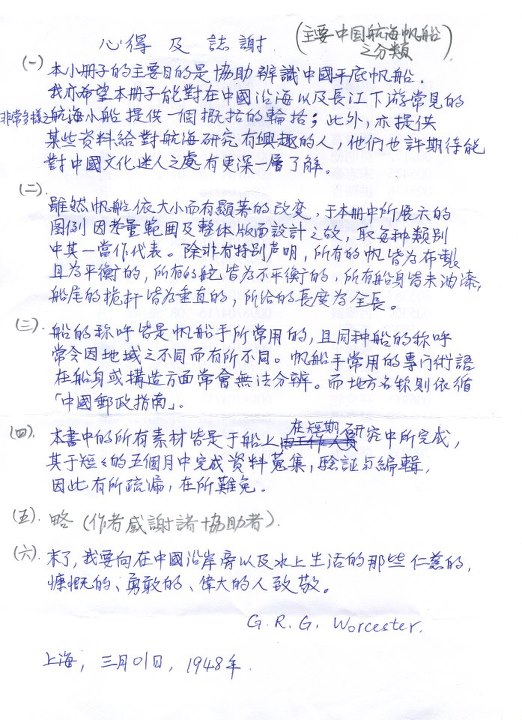 心得及誌謝 (主要中国航海帆船之分類)
(一) 本小册子的主要目的是協助辨識中國平底帆船.
我亦希望本册子能對在中國沿海以及長江下游常見的
非常多樣之航海小船提供一個概括的輪括；此外，亦提供
某些资料給對航海研究有興趣的人，他們也許期待能
對中國文化迷人之處有更深一層了解。
(二)
雖然帆船依大小而有顯著的改变，于本册中所展示的
圖例因考量範围及整体版面設計之故，取每种類别
中其一當作代表。除非有特别声明，所有的帆皆為布製
且為平衡的，所有的舵皆為不平衡的，所有船身皆未油漆，
船尾的桅杆皆為垂直的，所给的長度為全長。
(三) 船的称呼皆是帆船手所常用的，且同种船的称呼
常令因地域之不同而有所不同。帆船手常用的專门術語
在船身或構造方面常會無法分辨。而地方名称則依循
「中國郵政指南」。
(四) 本書中的所有素材皆是于船上在短期研究中所完成，
其于短々的五個月中完成资料蒐集，驗証与編輯，
因此有所疏漏，在所難免。
(五) 略 (作者感謝諸協助者).
(六) 末了，我要向在中國沿岸旁以及水上生活的那些仁慈的，
慷慨的、勇敢的、偉大的人致敬。
G. R. G. Worcester.
上海，三月01日，1948年.